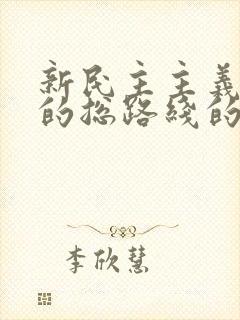 新民主主義
的总路綫的
李欣慧